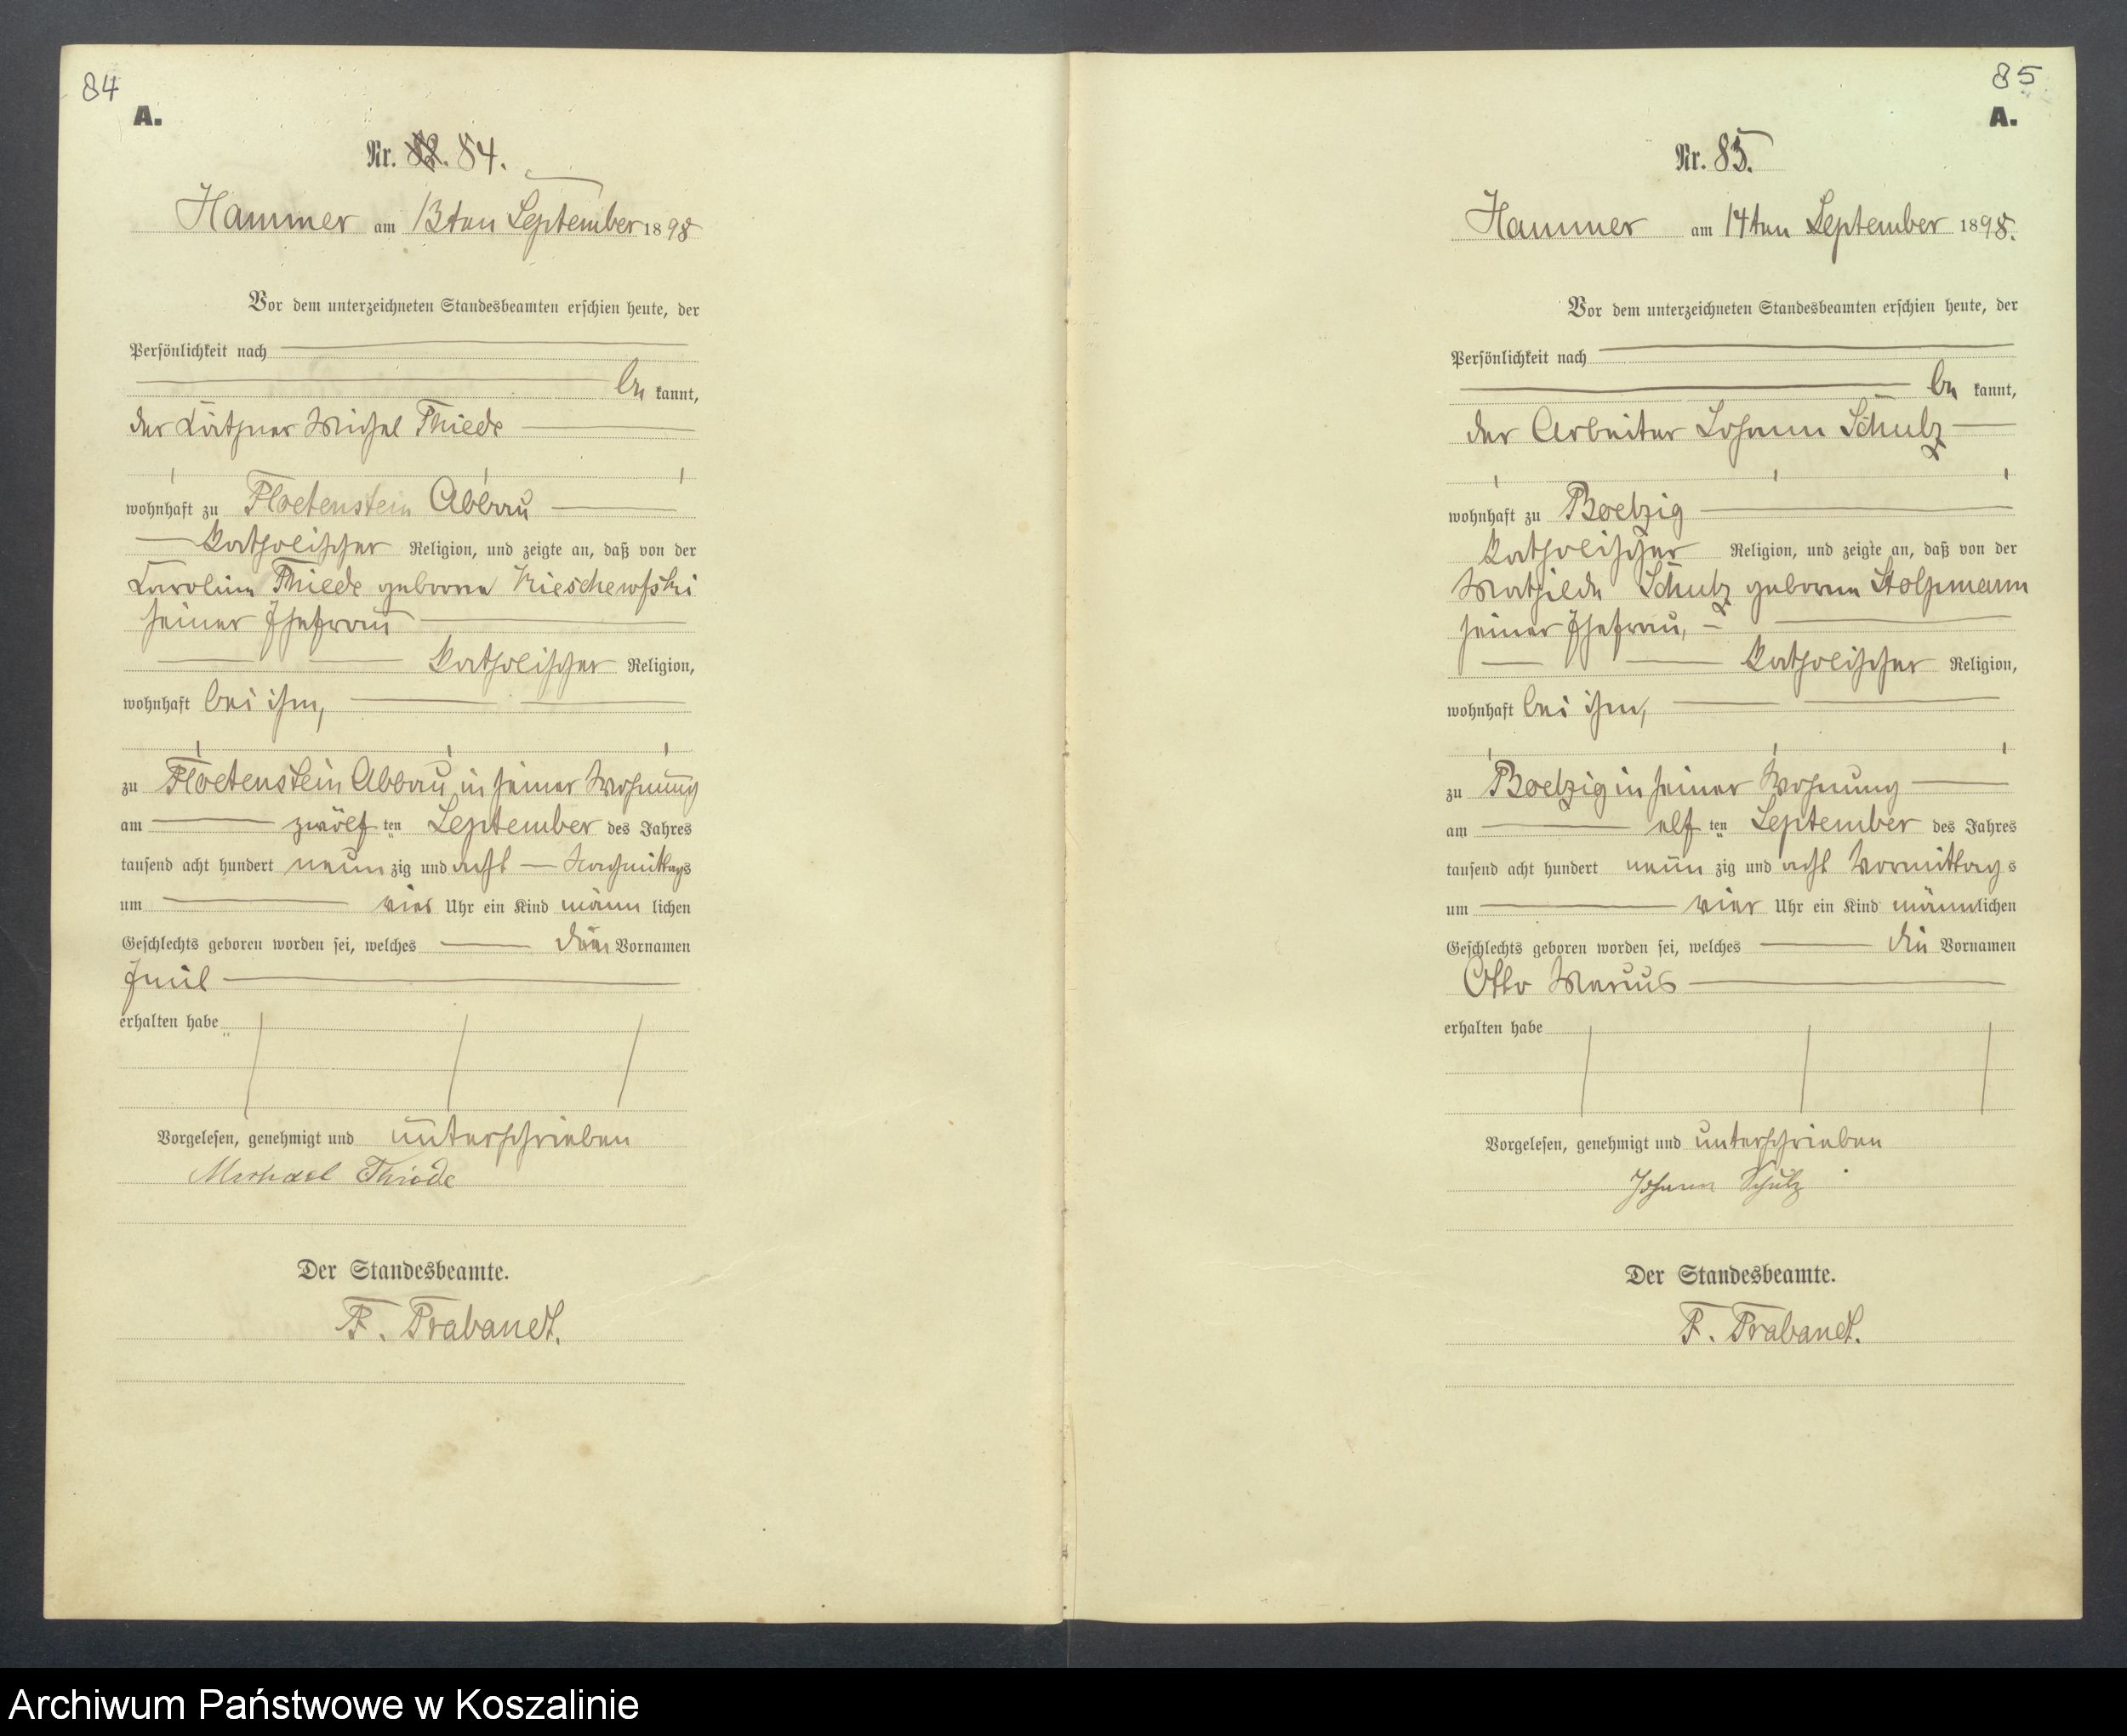 84
A.
Nr. 82. 84.
Hammer am 13ten September 1898
Vor dem unterzeichneten Standesbeamten erschien heute, der
Persönlichkeit nach
be kannt,
der Käthner Michel Thiede
wohnhaft zu Floetenstein Abbau
katholischer Religion, und zeigte an, daß von der
Caroline Thiede geborene Kieschewski
seiner Ehefrau
katholischer Religion,
wohnhaft bei ihm,
zu Floetenstein Abbau in seiner Wohnung
am zwölf ten September des Jahres
tausend acht hundert neun zig und acht Nachmittags
um vier Uhr ein Kind männ lichen
Geschlechts geboren worden sei, welches den Vornamen
Emil
erhalten habe
Vorgelesen, genehmigt und unterschrieben
Michael Thiede
Der Standesbeamte.
F. Trabandt.
85
A.
Nr. 85.
Hammer am 14ten September 1898.
Vor dem unterzeichneten Standesbeamten erschien heute, der
Persönlichkeit nach
be kannt,
der Arbeiter Johann Schulz
wohnhaft zu Boelzig
katholischer Religion, und zeigte an, daß von der
Mathilde Schulz geborene Stolpmann
seiner Ehefrau,
katholischer Religion,
wohnhaft bei ihm,
zu Boelzig in seiner Wohnung
am elf ten September des Jahres
tausend acht hundert neun zig und acht Vormittags
um vier Uhr ein Kind männlichen
Geschlechts geboren worden sei, welches die Vornamen
Otto
erhalten habe
Vorgelesen, genehmigt und unterschrieben
Johann Schulz
Der Standesbeamte.
F. Trabandt.
Archiwum Państwowe w Koszalinie